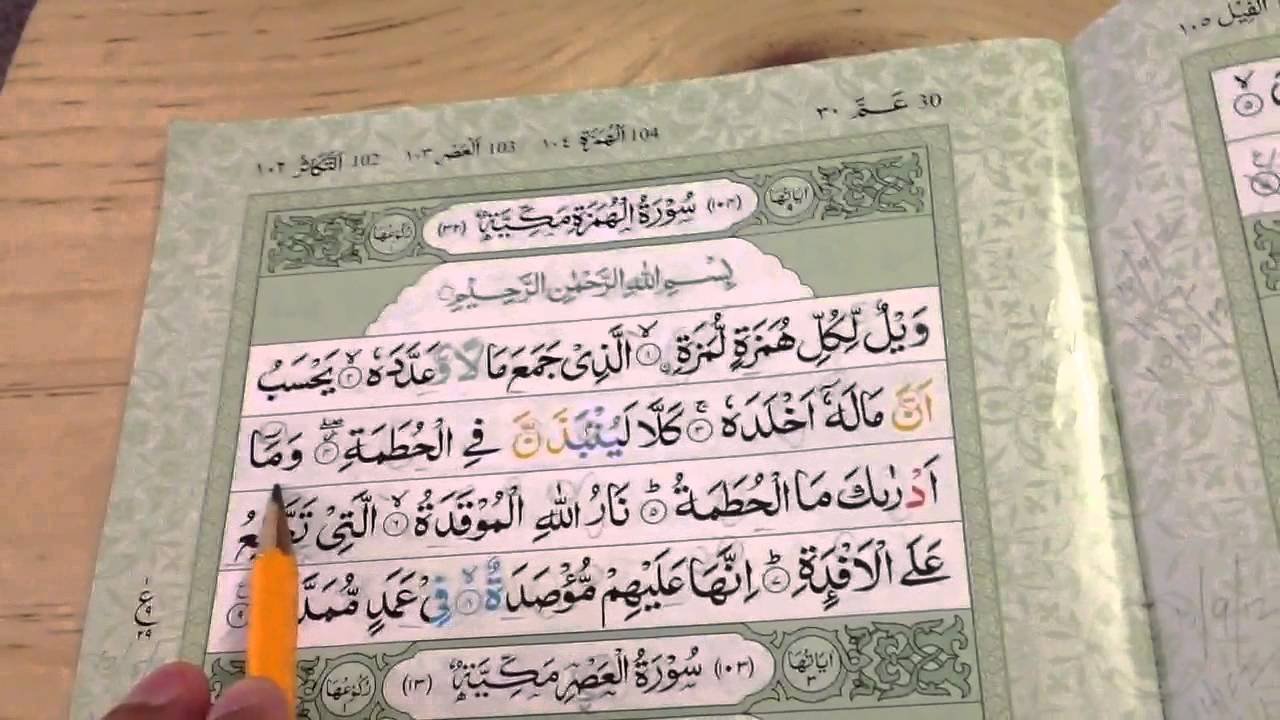 الفيل ١٠٥
30 عَمَّ ٣٠
104 اَلْهُمَزَةِ ١٠٤ 103 اَلْعَصْرِ ١٠٣ 102 اَلتَّكَاثُرْ ١٠٢
اياتها ٩ (١٠٤) سُوْرَةُ الْهُمَزَةِ مَكِّيَّةٌ (٣٢) رکوعها
بِسْمِ اللهِ الرَّحْمٰنِ الرَّحِيْمِ
وَيْلٌ لِّكُلِّ هُمَزَةٍ لُّمَزَةٍ ۙ‏ ١ الَّذِىْ جَمَعَ مَالًا وَّعَدَّدَهٗ ۙ‏ ٢ يَحْسَبُ
اَنَّ مَالَهٗۤ اَخْلَدَهٗ‌ ۚ‏ ٣ كَلَّا‌ لَيُنْۢبَذَنَّ فِى الْحُطَمَةِ ۖ ٤ وَمَاۤ
اَدْرٰٮكَ مَا الْحُطَمَةُ ؕ‏ ٥ نَارُ اللّٰهِ الْمُوْقَدَةُ ۙ‏ ٦ الَّتِىْ تَطَّلِعُ
عَلَى الْاَفْـئِدَةِ ؕ‏ ٧ اِنَّهَا عَلَيْهِمْ مُّؤْصَدَةٌ ۙ‏ ٨ فِىْ عَمَدٍ مُّمَدَّ ٩
اياتها ٣ (١٠٣) سُوْرَةُ الْعَصْرِ مَكِّيَّةٌ (١٣) رکوعها ١
ع
٢٩